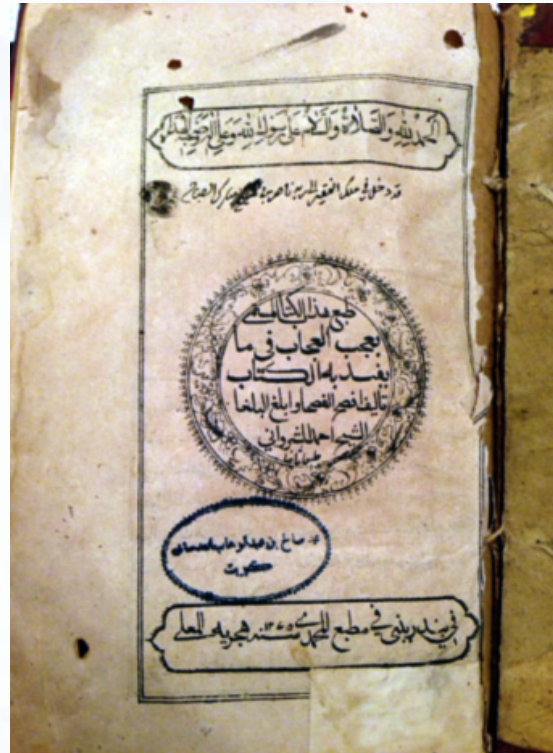 الحمد لله والصلاة والسلام على رسول الله وعلى
قد دخل في ملك الفقير
طبع هذا الكتاب المسمى
بعجب العجاب في ما
يفيد به الكتاب
تاليف افصح الفصحا وابلغ البلغا
الشيخ احمد الشرواني
صالح بن عبدالوهاب
كويت
في بندر بنبي في مطبع المحمدي سنة ١٢٧٥ هجرية المعلى